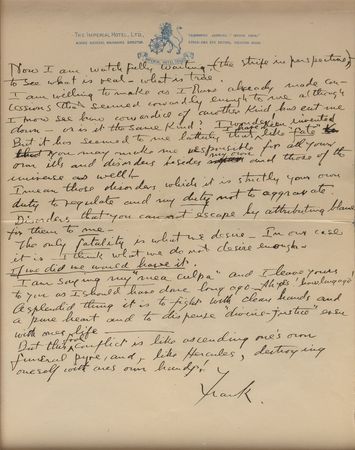 THE IMPERIAL HOTEL, LTD.,
Now I am watchfully waiting (the strife in perspective)
to see what is real – what is true.
I am willing to make as I have already made con-
cessions that seemed cowardly enough to me although
I now see how cowardice of another kind has cut me
down – or is it the same kind? I wonder!
But it does seem to me lately, that like "Fate"
you may make me responsible for all your
own ills and disorders besides my own and those of the
universe as well –
I mean those disorders which it is strictly your own
duty to regulate and my duty not to aggravate.
Disorders that you cannot escape by attributing blame
for them to me –
The only fatality is what we desire – In our case
it is I think what we do not desire enough –
If we did we would have it.
I am saying my "mea culpa" and I leave yours
to you as I should have done long ago –
A splendid thing it is to fight with clean hands and
a pure heart and to dispense "divine-justice" even
with ones life –
But this conflict is like ascending one's own
funeral pyre, and, like Hercules, destroying
oneself with ones own hands!
Frank.